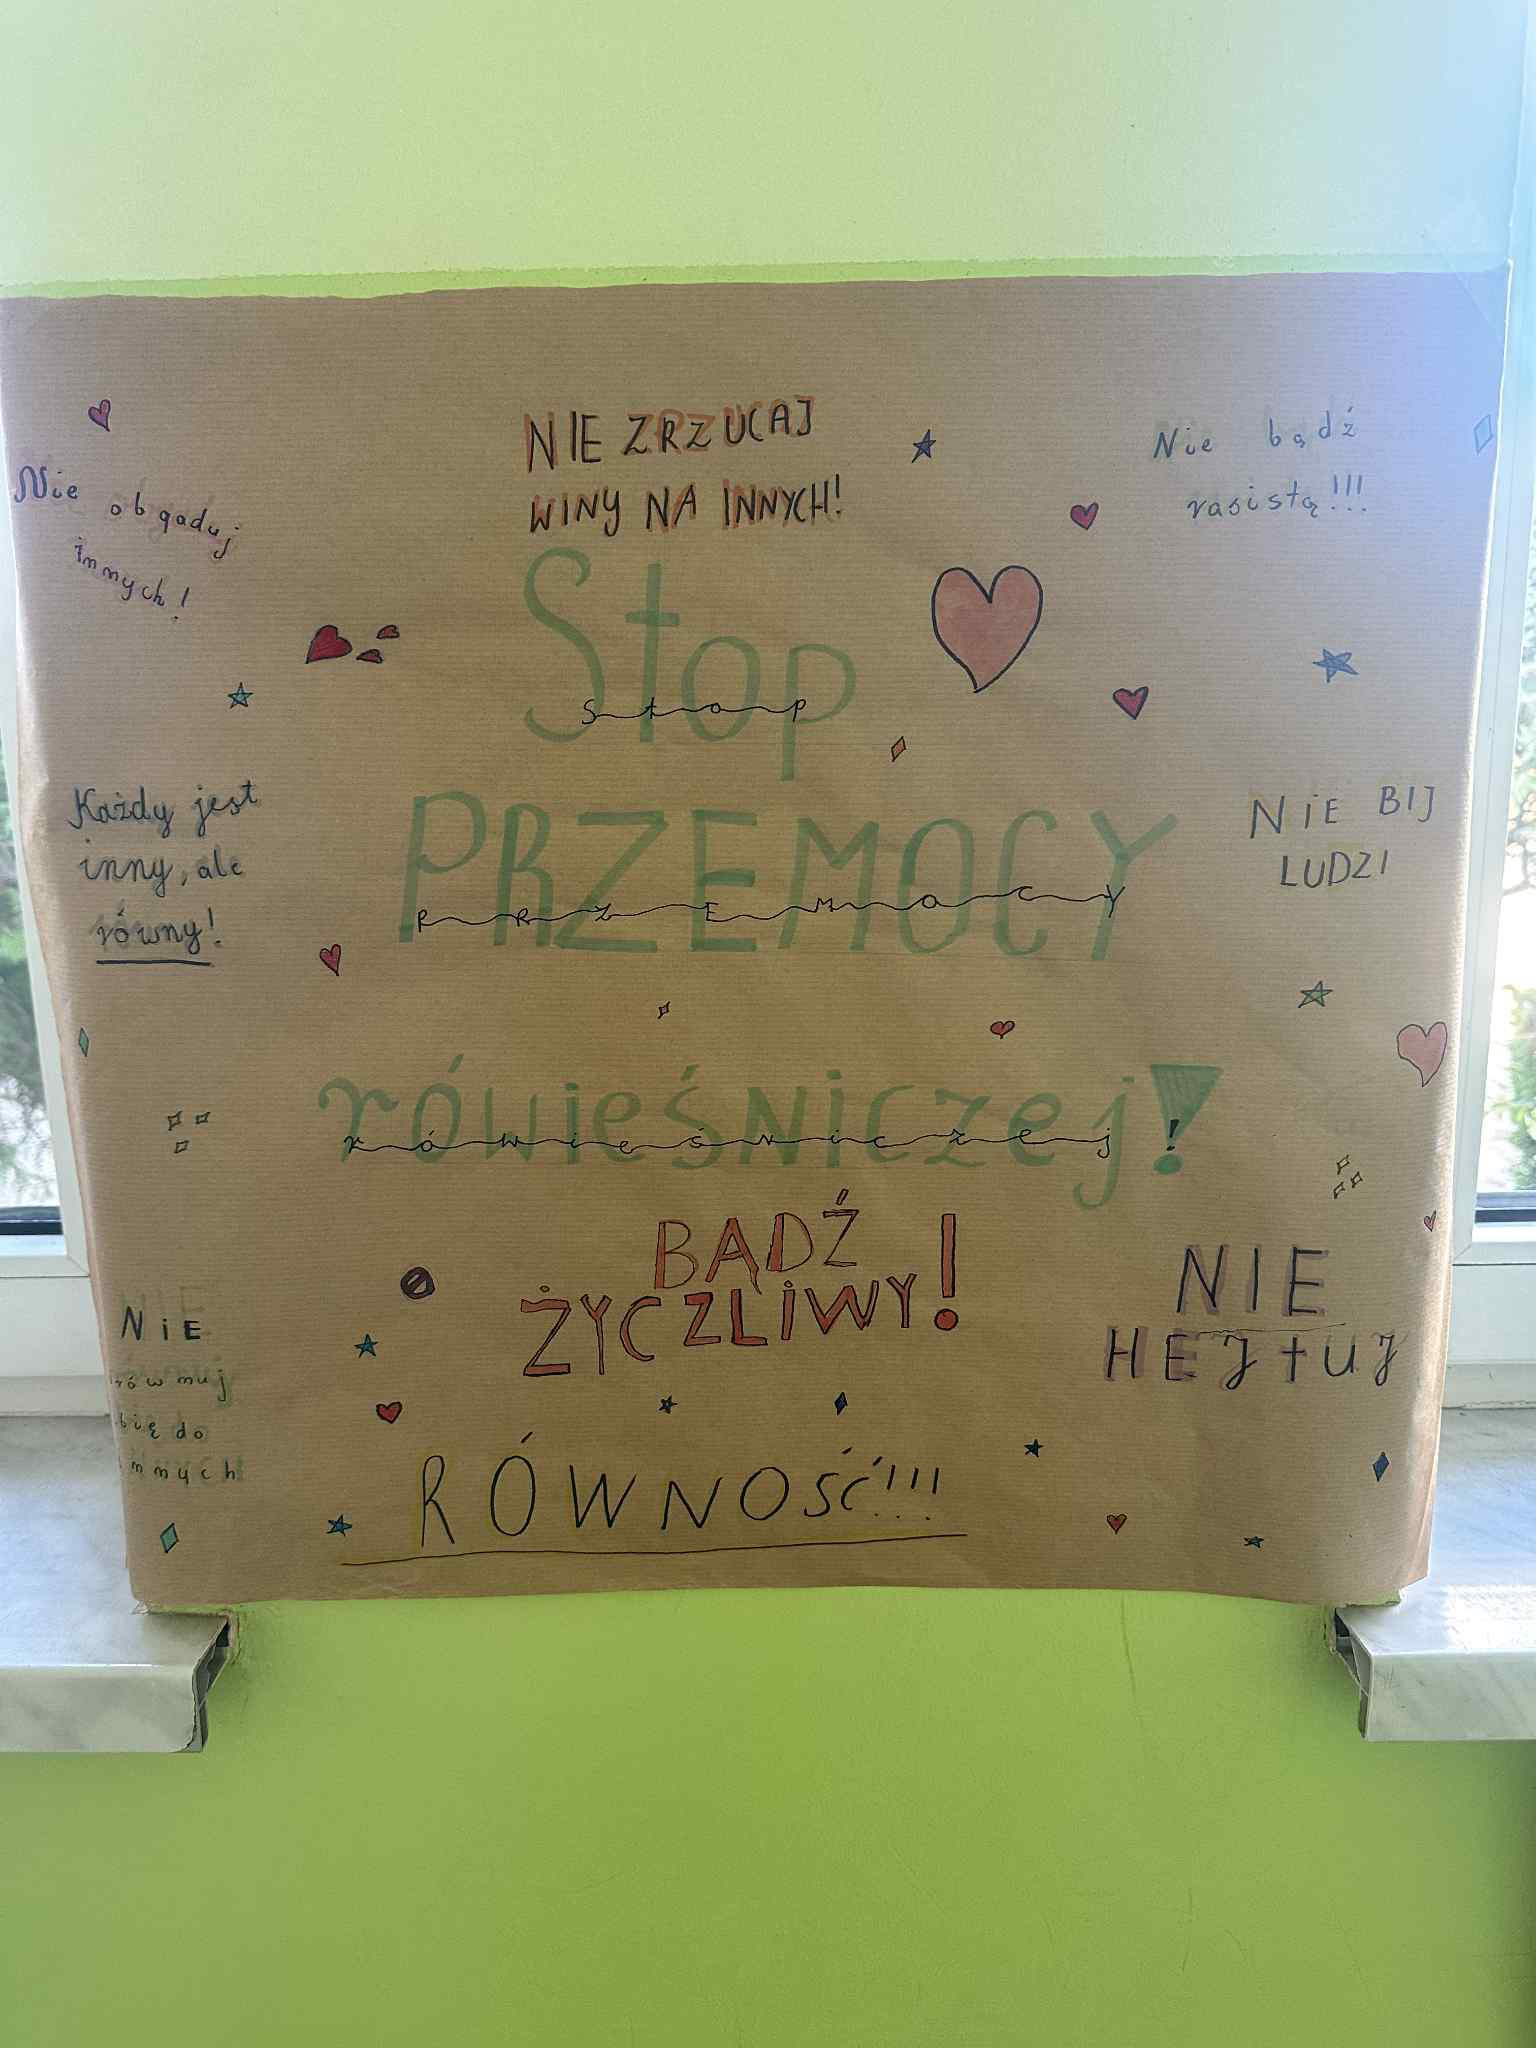 NIE ZRZUCAJ
WINY NA INNYCH!
Nie bądź
rasistą!!!
Nie
obgaduj
innych!
Stop
Stop
Każdy jest
inny, ale
równy!
PRZEMOCY
PRZEMOCY
NIE BIJ
LUDZI
rówieśniczej!
rówieśniczej!
BĄDŹ
ŻYCZLIWY!
NIE
HEJtUJ
NIE
równuj
się do
innych
RÓWNOŚĆ!!!